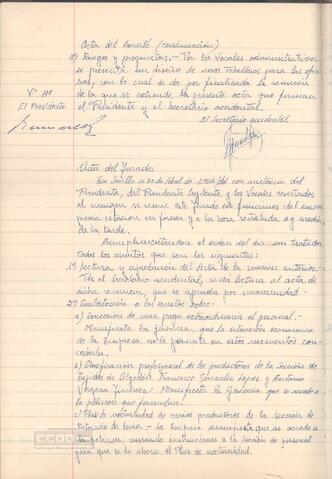 Acta del Comité (continuación)
3º) Ruegos y preguntas.- Por los Vocales administrativos
se presenta un diseño de unos taburetes para las ofici
nas, con lo cual se da por finalizada la reunión
de la que se extiende la presente acta que firman
el Presidente y el Secretario accidental.
Vº Bº
El Presidente
El Secretario accidental
Acta del Jurado
En Sevilla a 20 de Abril de 1964, con asistencia del
Presidente, del Presidente Suplente y los Vocales reseñados
al margen se reune este Jurado en funciones de
previa citación en forma y a la hora señalada 6 y media
de la tarde.
Cumplimentándose el orden del día son tratados
todos los asuntos que son los siguientes:
1º) Lectura y aprobación del Acta de la reunión anterior.-
Por el Secretario accidental, se da lectura al acta de
dicha reunión, que se aprueba por unanimidad.
2º) Contestación a los escritos sobre:
a) Concesión de una paga extraordinaria al personal.-
Manifiesta la Gerencia, que la situación económica
de la Empresa no le permite en estos momentos con-
cederla.
b) Clasificación profesional de los productores de la Sección de
Tejidos de Algodón Francisco Gonzalez Lopez y Antonio
Vergara Jimenez.- Manifiesta la Gerencia que se accede a
la petición que formulan.
c) Plus de nocturnidad de varios productores de la Sección de
de Lana.- La Empresa manifiesta que se accede a
la petición, cursando instrucciones a la Sección de personal
para que se le abone el Plus de nocturnidad.
CCOO